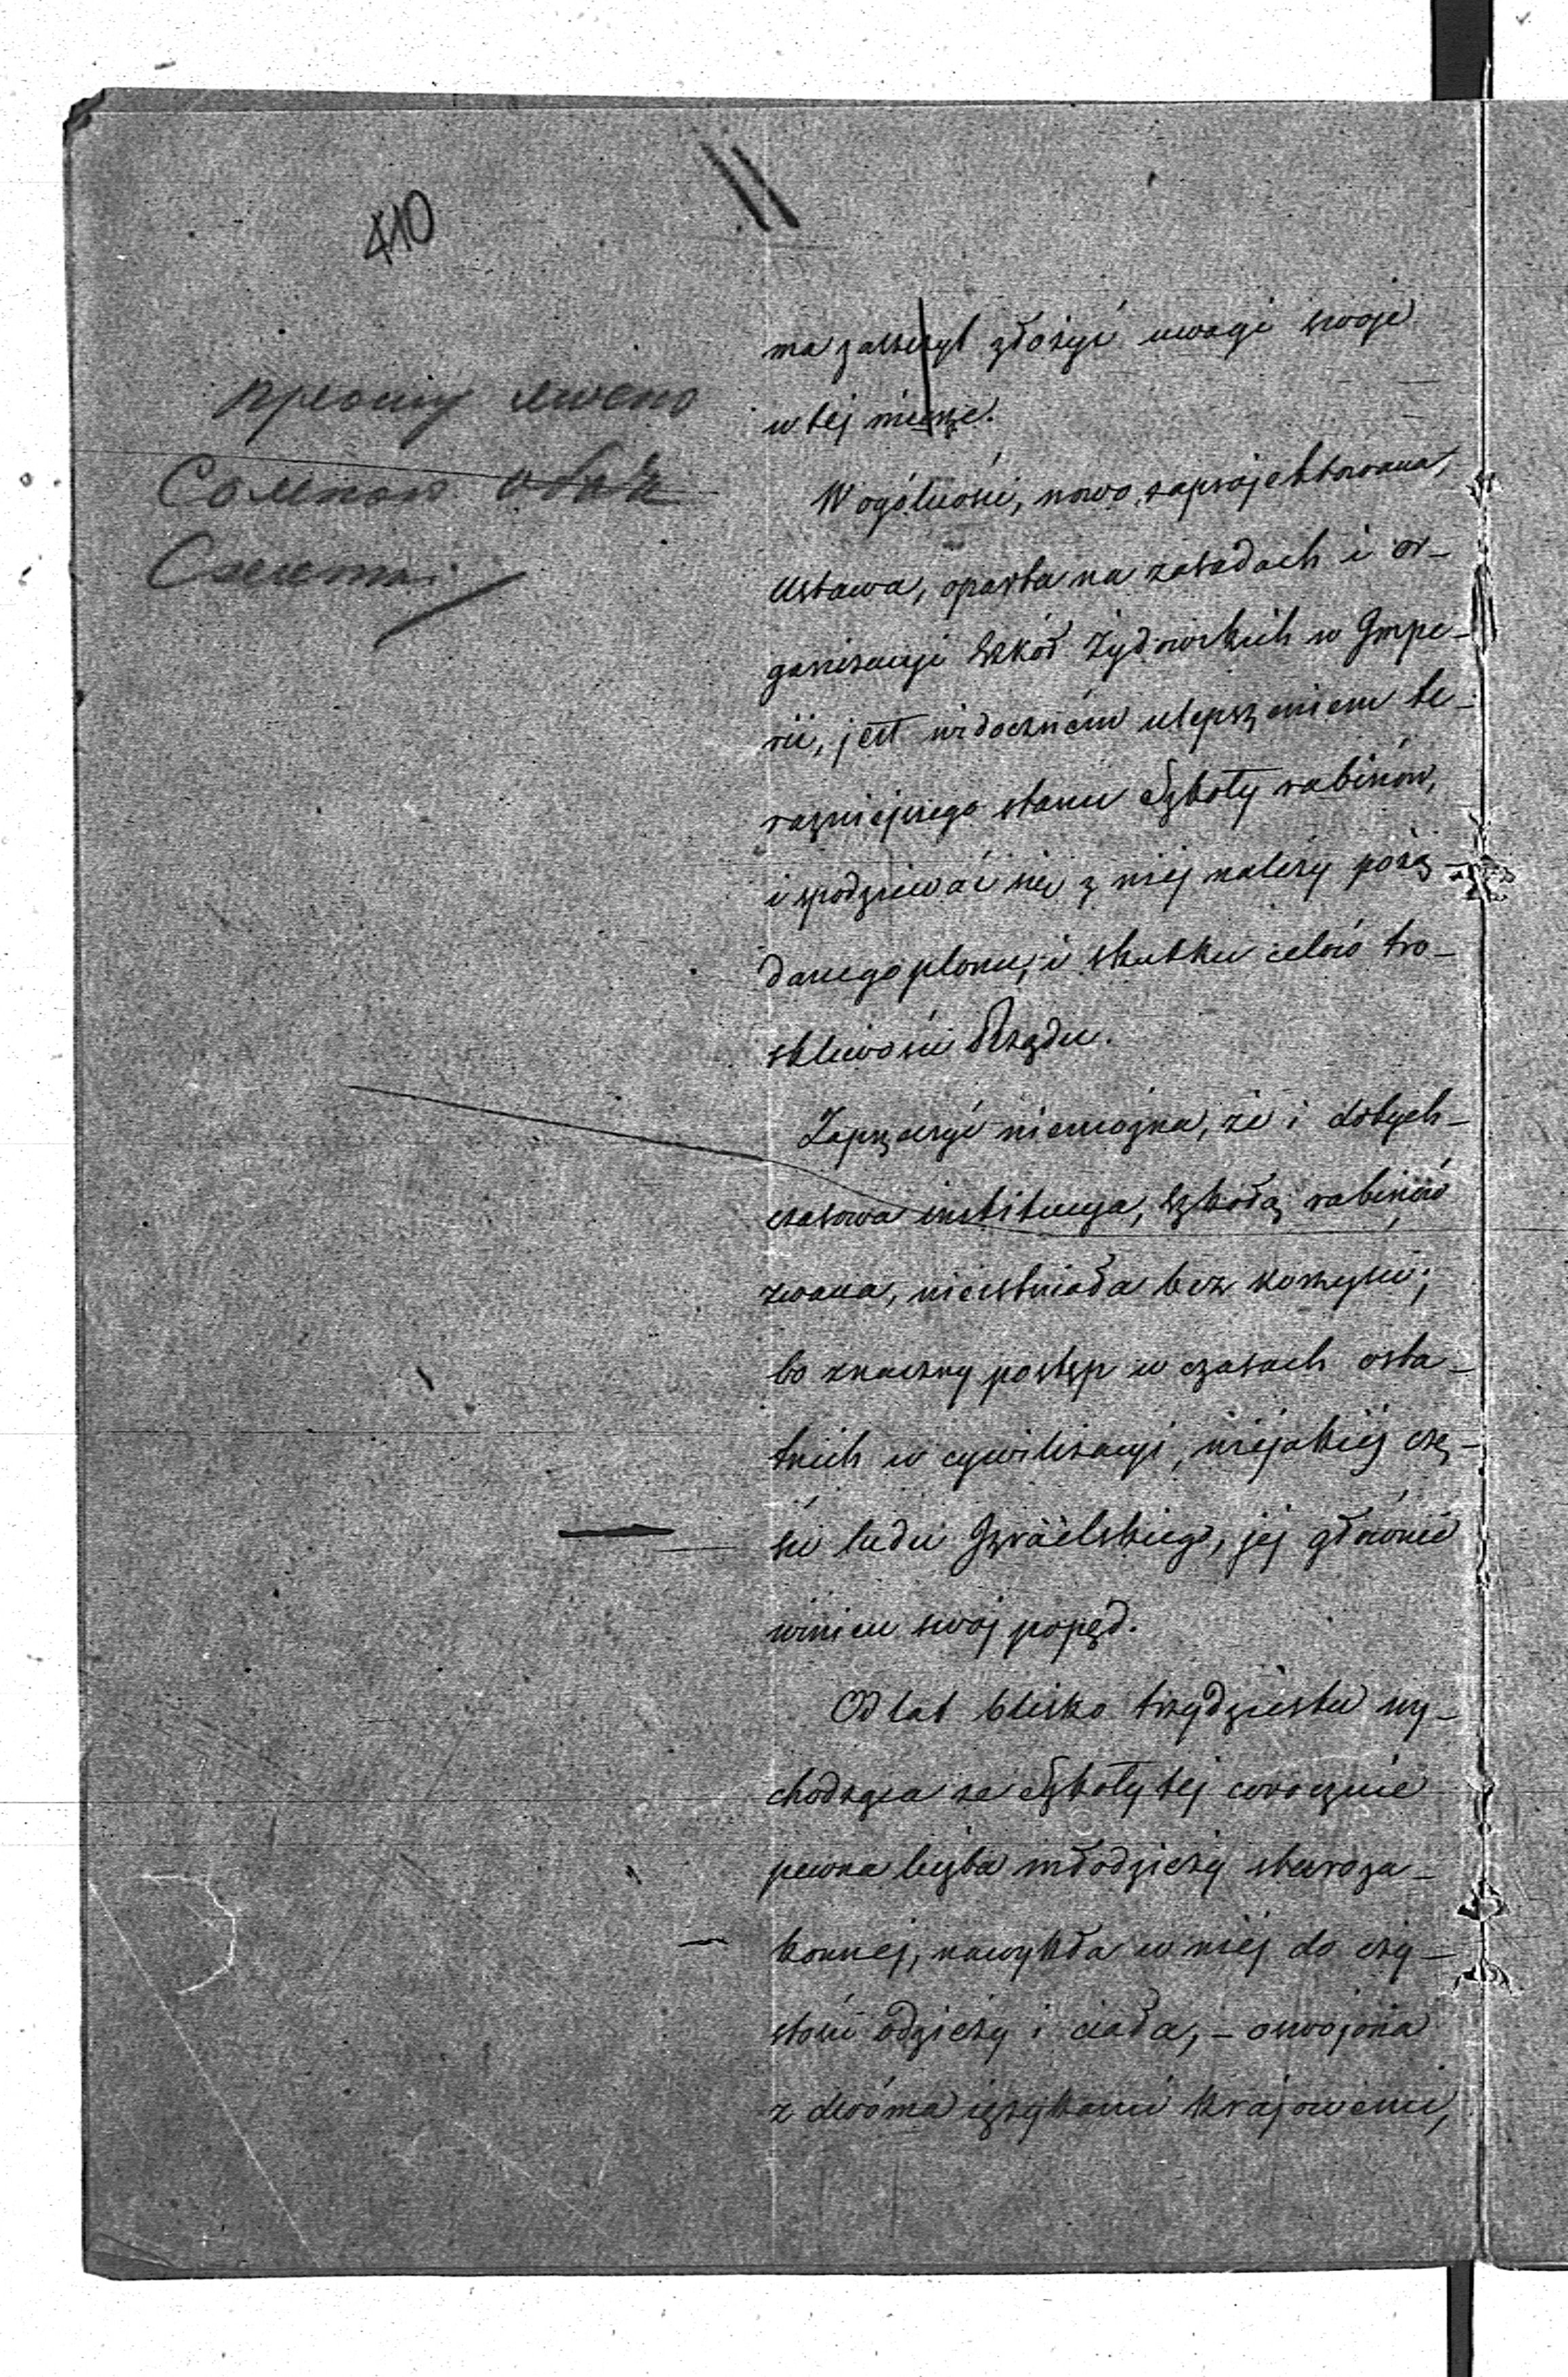 410
ma zaszczyt złożyć uwagi swoje
w tej mierze.
W ogólności, nowo zaprojektowana,
Ustawa, oparta na zasadach i or-
ganizacyi Szkół Żydowskich w Impe-
rii, jest widoczném ulepszeniem te-
raźniejszego stanu Szkoły rabinów,
i spodziewać się z niej należy pożą-
danego plonu, i skutku celów tro-
skliwości Rządu.
Zaprzeczyć niemożna, że i dotych-
czasowa institucya, Szkołą rabinów
zwana, nieistniała bez korzyści;
bo znaczny postęp w czasach osta-
tnich w cywilizacyi, niejakiéj czę-
ści ludu Izraëlskiego, jej głównie
winien swój popęd.
Od lat blisko trzydziestu wy-
chodząca ze Szkoły tej corocznie
pewna liczba młodzieży staroza-
konnej, nawykła w niéj do czy-
stości odzieży i ciała, - oswojona
z dwóma językami krajowemi,